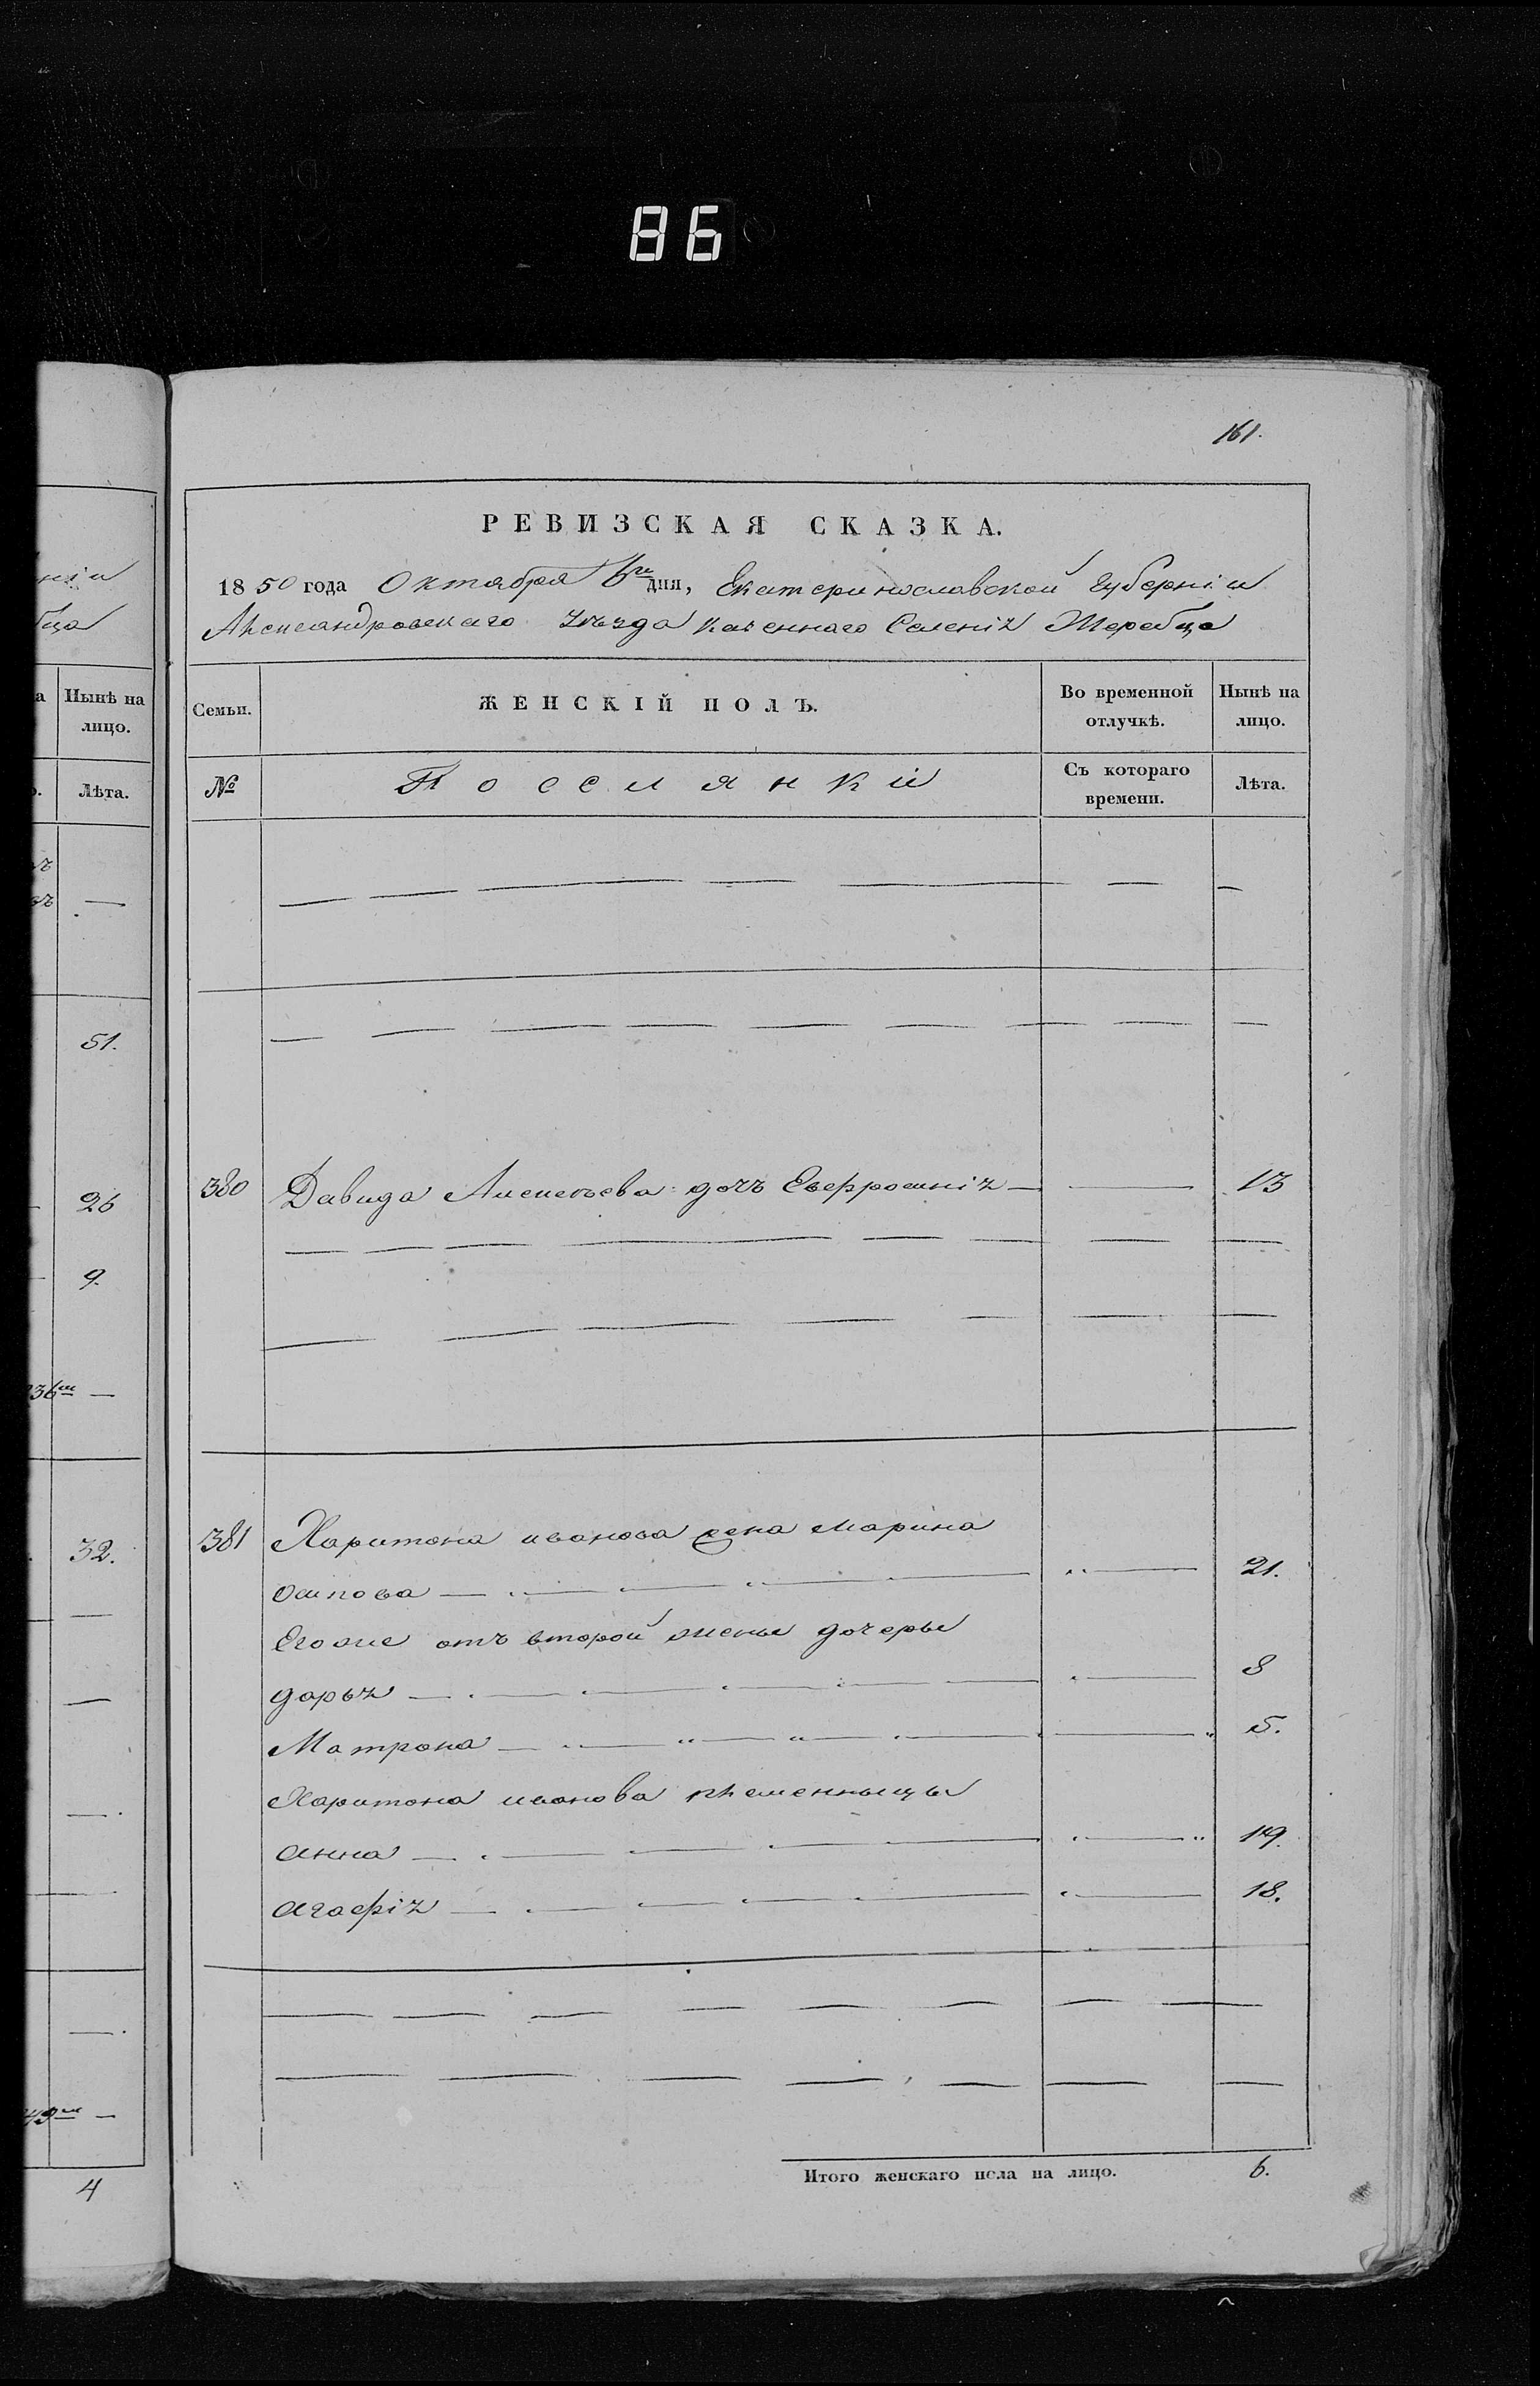 86
161.
нiи
бца
а Нынѣ на лицо.
Лѣта.
51.
26
9.
36
32.
49
4
РЕВИЗСКАЯ СКАЗКА.
1850 года Октября 6го дня, Екатеринославской Губернiи
Александровскаго Уѣзда казеннаго Селенiя Жеребца
Семьи. ЖЕНСКIЙ ПОЛЪ. Во временной отлучкѣ. Нынѣ на лицо.
№ Поселянки Съ котораго времени. Лѣта.
380 Давида Алексѣева дочь Евфросинiя — — 13
381 Харитона иванова жена марина
осипова — — 21.
Егоже отъ второй жены дочеры
дарья — — 8
Матрона — — 5.
Харитона иванова племенныцы
анна — — 19.
агафiя — — 18.
Итого женскаго пола на лицо. 6.